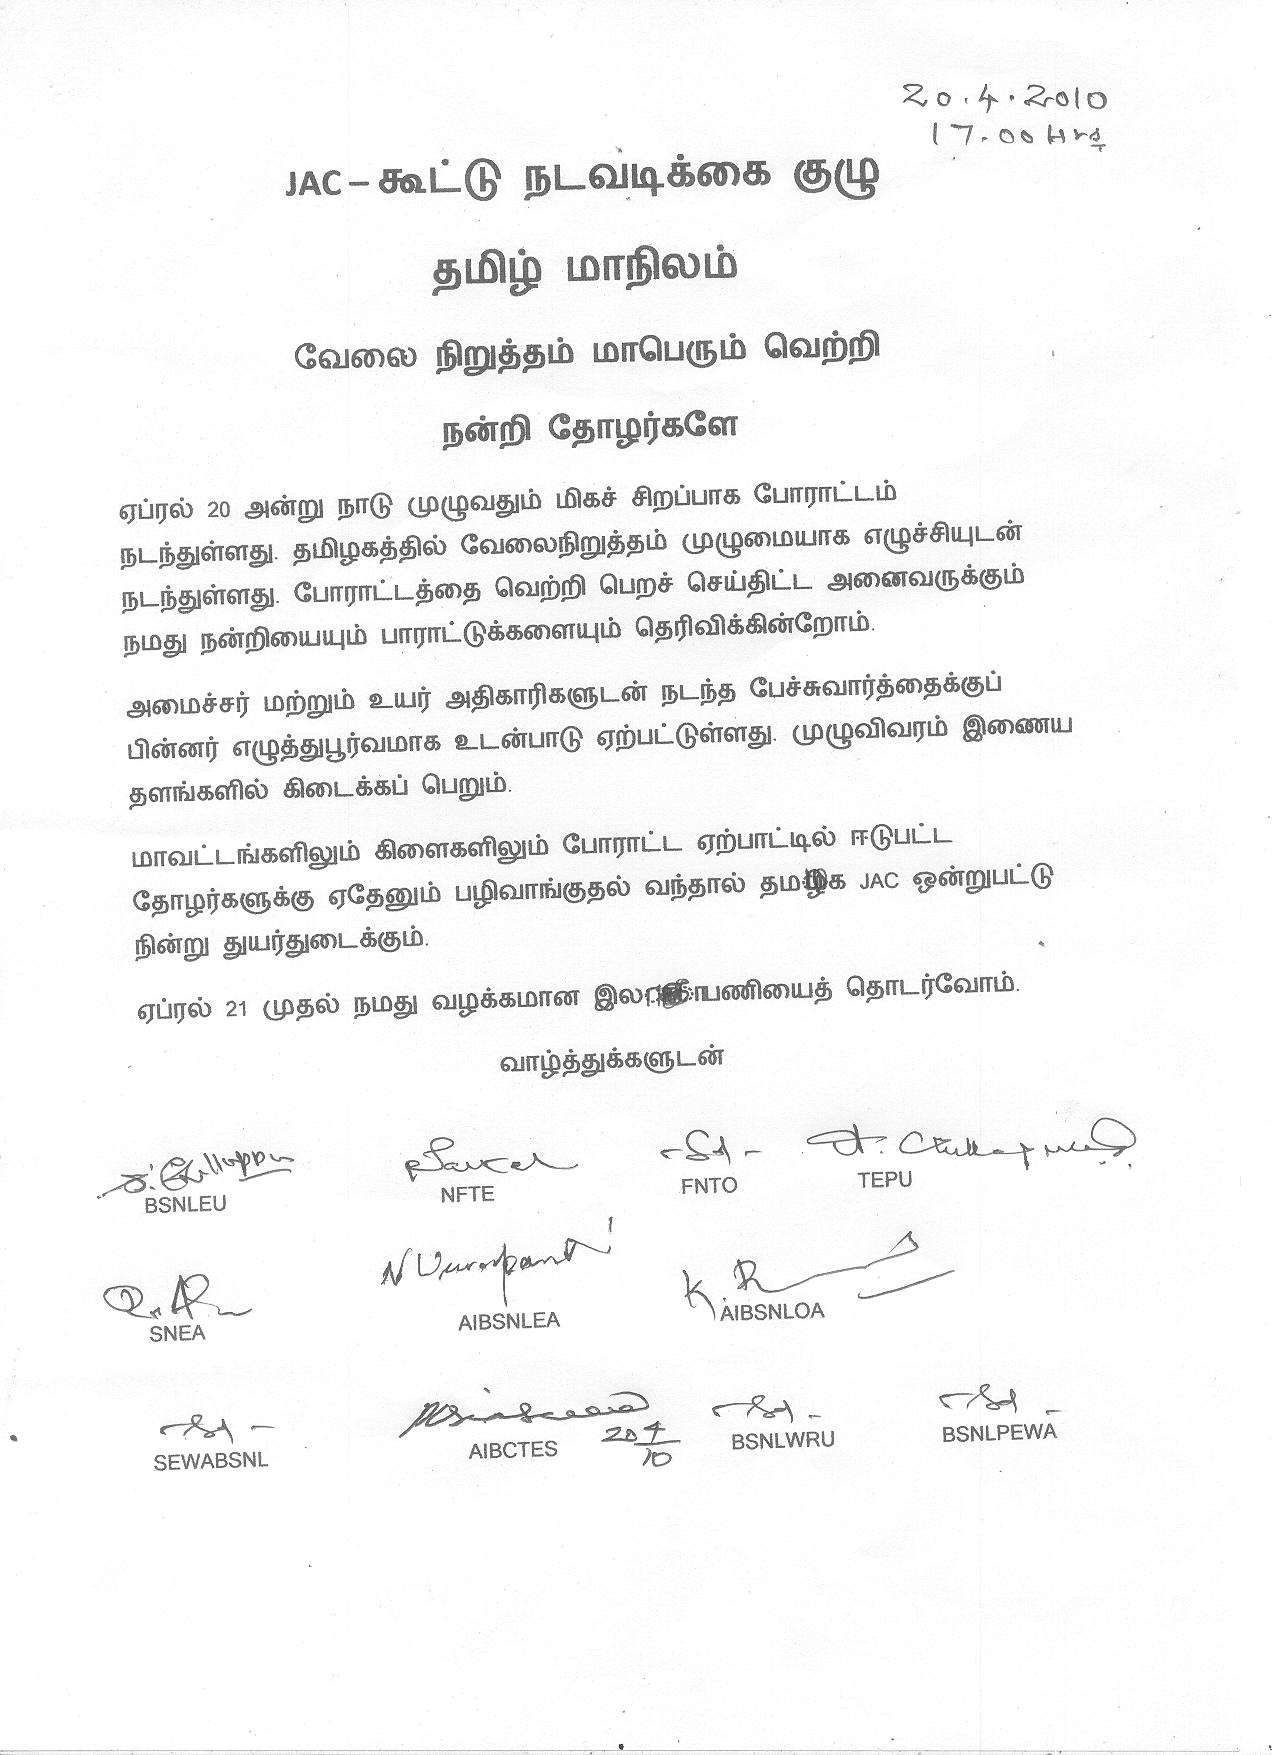 20.4.2010
17.00 Hrs
JAC – கூட்டு நடவடிக்கை குழு
தமிழ் மாநிலம்
வேலை நிறுத்தம் மாபெரும் வெற்றி
நன்றி தோழர்களே
ஏப்ரல் 20 அன்று நாடு முழுவதும் மிகச் சிறப்பாக போராட்டம்
நடந்துள்ளது. தமிழகத்தில் வேலைநிறுத்தம் முழுமையாக எழுச்சியுடன்
நடந்துள்ளது. போராட்டத்தை வெற்றி பெறச் செய்திட்ட அனைவருக்கும்
நமது நன்றியையும் பாராட்டுக்களையும் தெரிவிக்கின்றோம்.
அமைச்சர் மற்றும் உயர் அதிகாரிகளுடன் நடந்த பேச்சுவார்த்தைக்குப்
பின்னர் எழுத்துபூர்வமாக உடன்பாடு ஏற்பட்டுள்ளது. முழுவிவரம் இணைய
தளங்களில் கிடைக்கப் பெறும்.
மாவட்டங்களிலும் கிளைகளிலும் போராட்ட ஏற்பாட்டில் ஈடுபட்ட
தோழர்களுக்கு ஏதேனும் பழிவாங்குதல் வந்தால் தமிழக JAC ஒன்றுபட்டு
நின்று துயர்துடைக்கும்.
ஏப்ரல் 21 முதல் நமது வழக்கமான பணியைத் தொடர்வோம்.
வாழ்த்துக்களுடன்
-Sd-
BSNLEU NFTE FNTO TEPU
SNEA AIBSNLEA AIBSNLOA
-Sd- 20/4/10 -Sd- -Sd-
SEWABSNL AIBCTES BSNLWRU BSNLPEWA